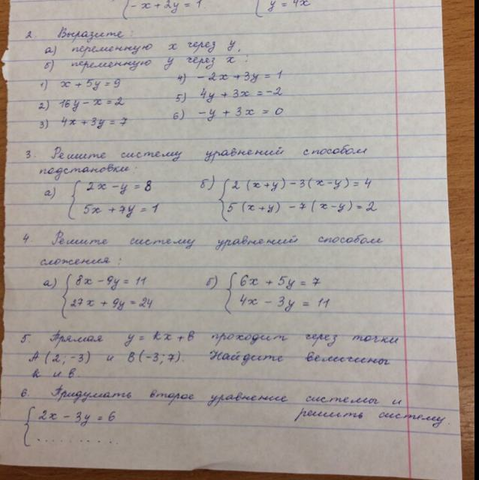 -x + 2y = 1
y = 4x
2. Выразите:
а) переменную x через y,
б) переменную y через x:
1) x + 5y = 9
4) -2x + 3y = 1
2) 16y - x = 2
5) 4y + 3x = -2
3) 4x + 3y = 7
6) -y + 3x = 0
3. Решите систему уравнений способом
подстановки:
а) { 2x - y = 8
5x + 7y = 1
б) { 2(x+y) - 3(x-y) = 4
5(x+y) - 7(x-y) = 2
4. Решите систему уравнений способом
сложения:
а) { 8x - 9y = 11
27x + 9y = 24
б) { 6x + 5y = 7
4x - 3y = 11
5. Прямая y = kx + b проходит через точки
A(2, -3) и B(-3; 7). Найдите величины
k и b.
6. Придумать второе уравнение системы и
решить систему.
{ 2x - 3y = 6
.........